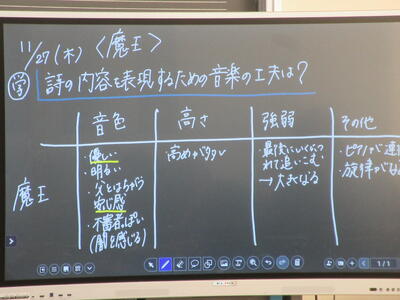 11/27(木) 〈魔王〉
㋻ 詩の内容を表現するための音楽の工夫は?
音色 高さ 強弱 その他
魔王
・優しい
・明るい
・父とはちがう
安心感
・不審者っぽい
(闇を感じる)
高めが多い
・最後にいくにつ
れて追いこむ
→大きくなる
・ピアノが連
・旋律がな
1/1